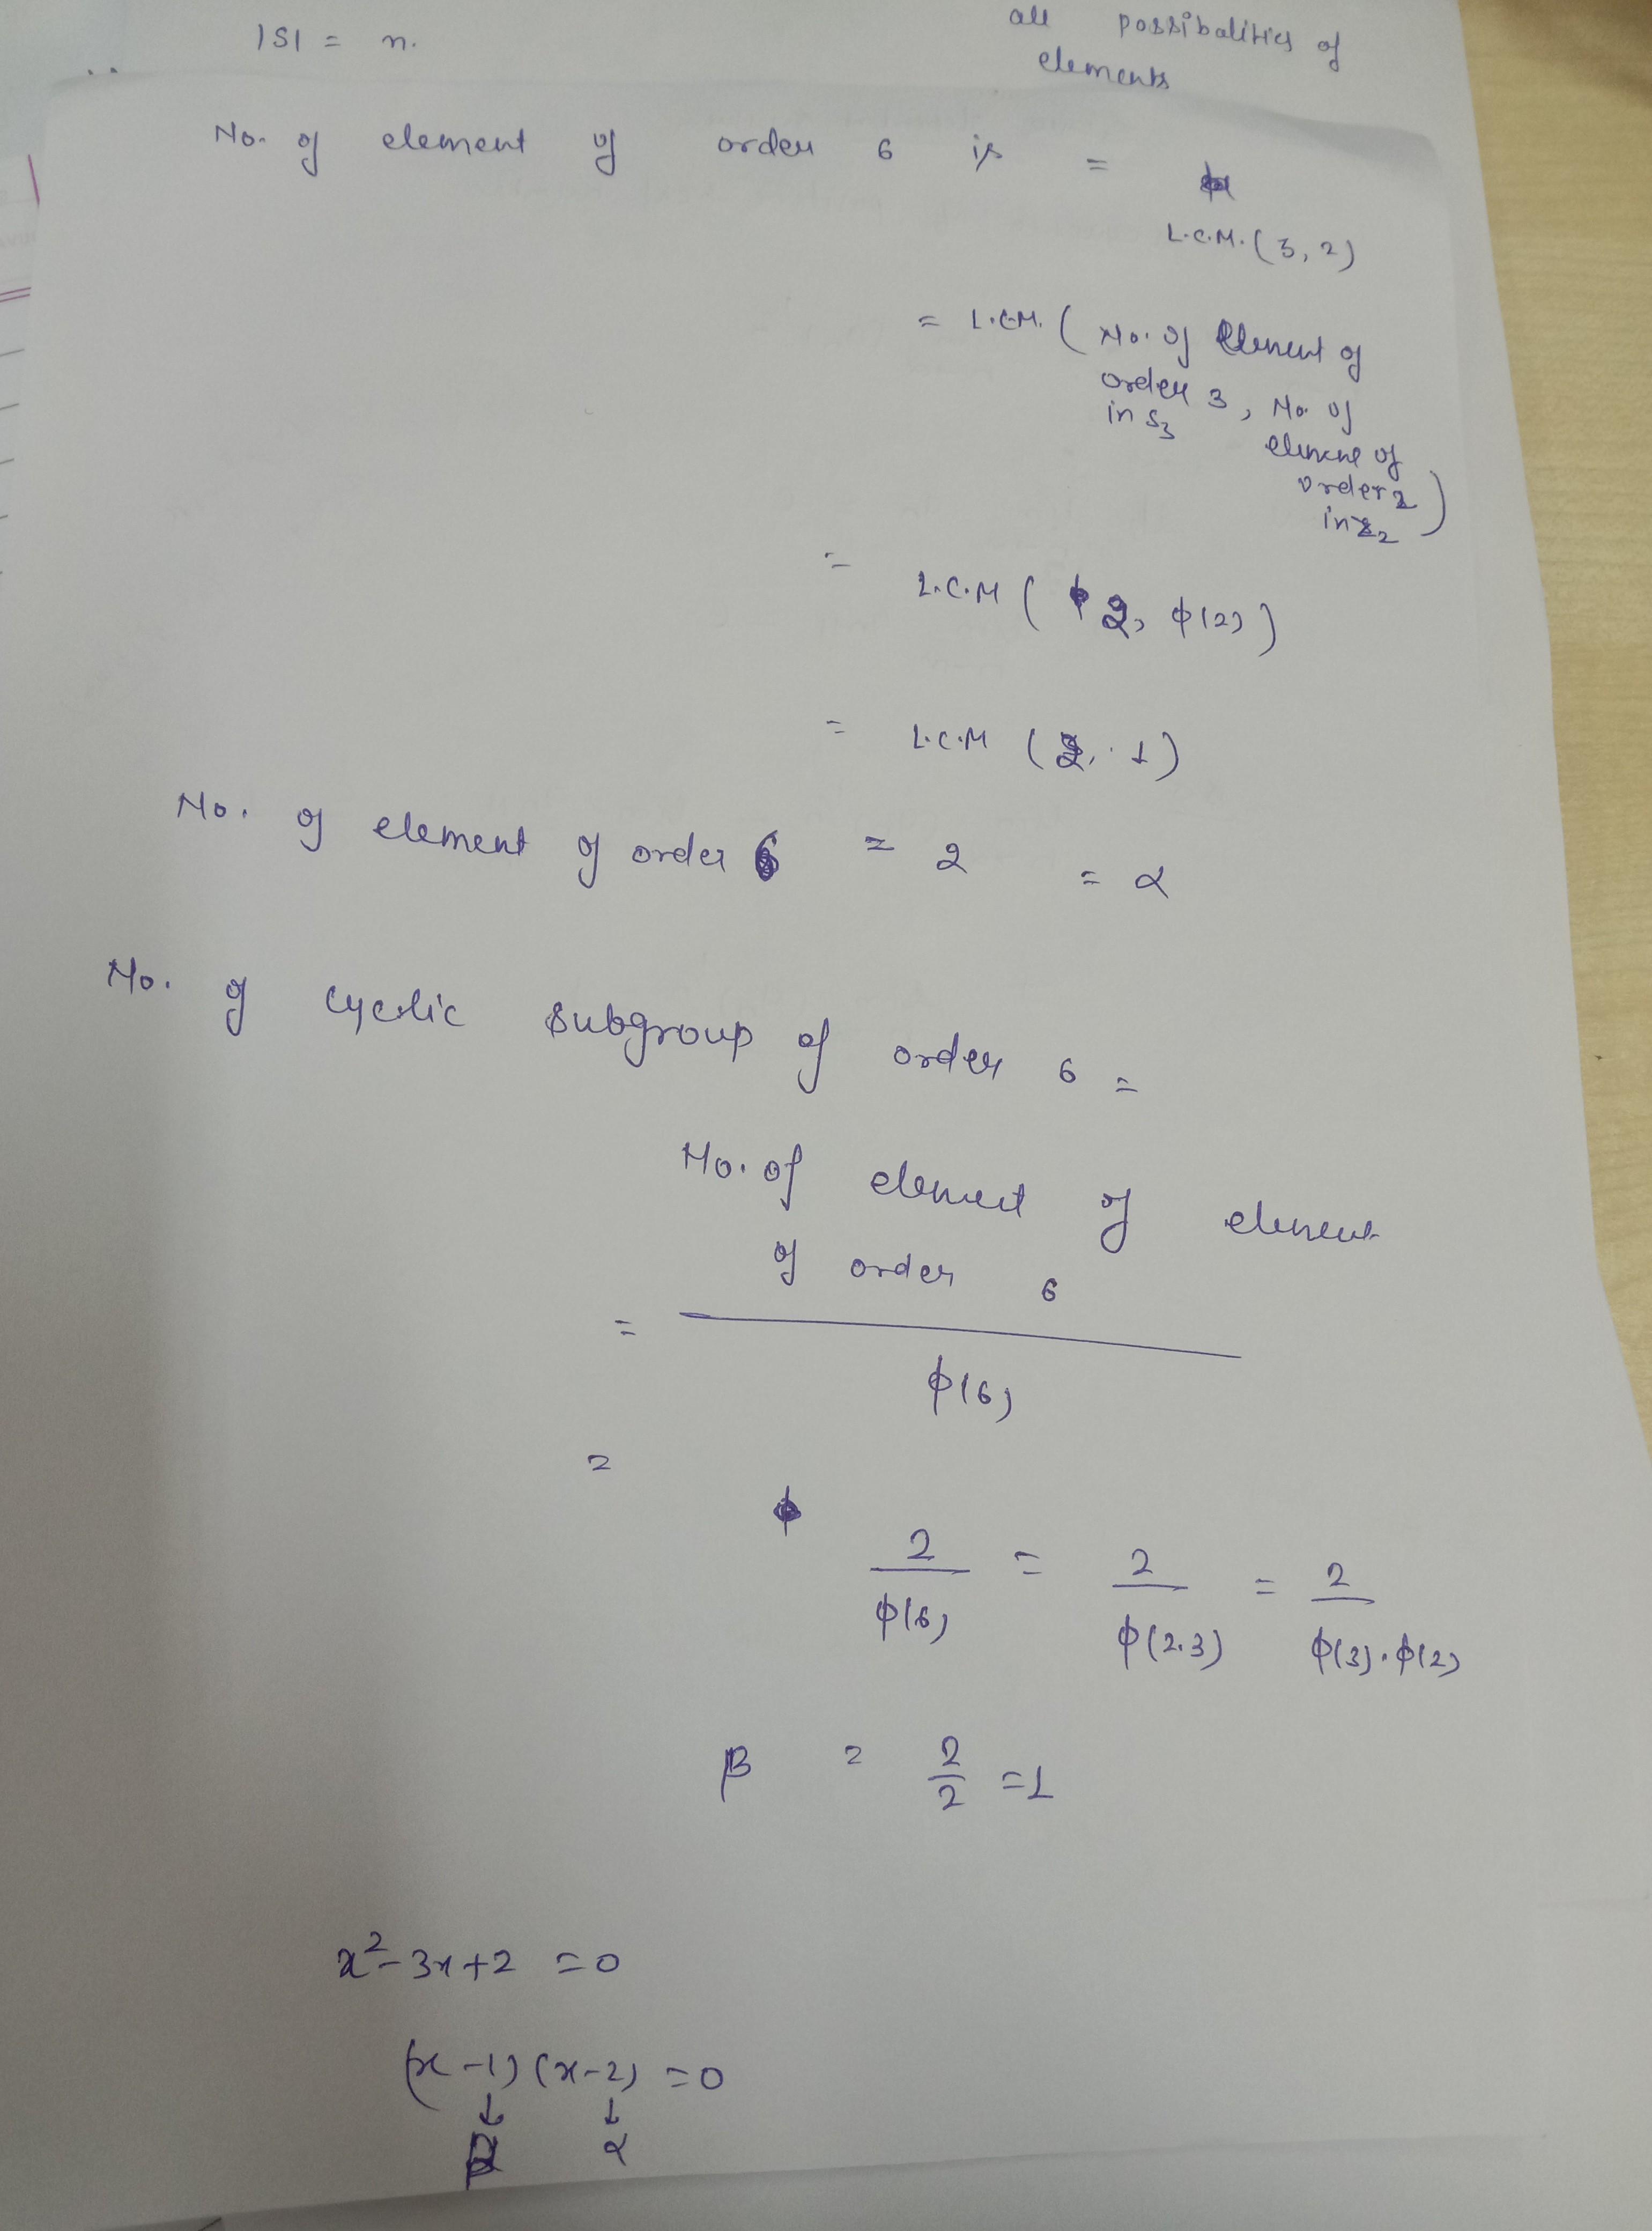 |S| = n.
all possibalities of
elements
No. of element of order 6 is =
L.C.M. (3, 2)
= L.C.M. ( No. of Element of
order 3, No. of
in S3
element of
order 2 )
in Z2
= L.C.M ( 2, φ(2) )
= L.C.M (2, 1)
No. of element of order 6 = 2 = α
No. of cyclic subgroup of order 6 =
No. of element of element
of order 6
=
φ(6)
=
2/φ(6) = 2/φ(2.3) = 2/φ(3).φ(2)
β = 2/2 = 1
x² - 3x + 2 = 0
(x - 1) (x - 2) = 0
↓ ↓
β α